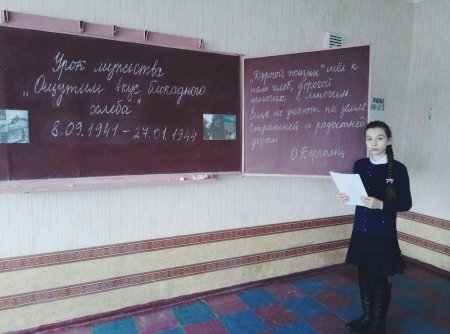 Урок мужества
„Ощутим вкус блокадного
хлеба"
8.09.1941 – 27.01.1944
„Дорогой жизни" шёл к
нам хлеб, дорогой
многих к многим.
Ещё не знают на земле
Страшней и радостней
дороги
О. Берголиц